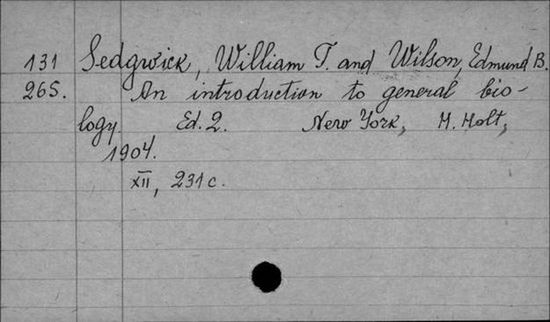 131 Sedgwick, William T. and Wilson, Edmund B.
265. An introduction to general bio-
logy. Ed. 2. New York, H. Holt,
1904.
XII, 231 c.